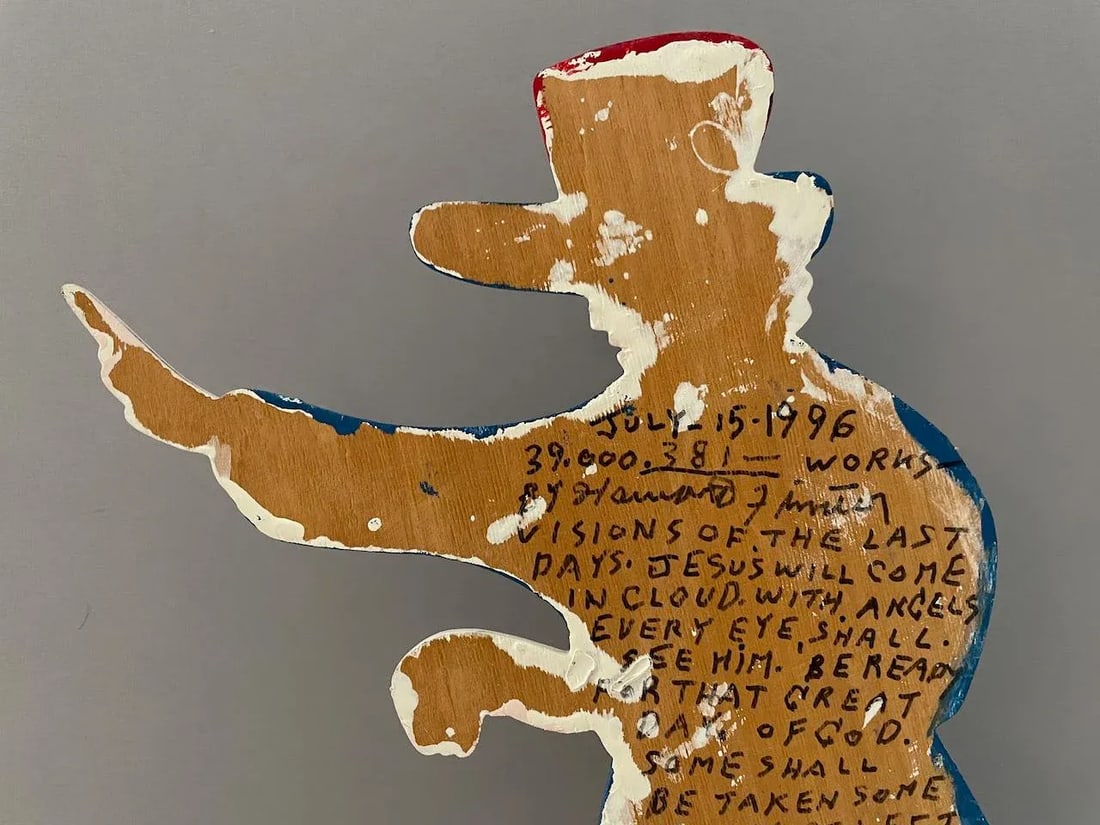 JULY-15-1996
39.000.381— WORKS—
BY Howard Finster
VISIONS OF. THE LAST
DAYS. JESUS WILL COME
IN CLOUD. WITH. ANGELS
EVERY EYE, SHALL.
SEE HIM. BE READY
FOR THAT GREAT
DAY. OF GOD.
SOME SHALL
BE TAKEN SOME
LEFT